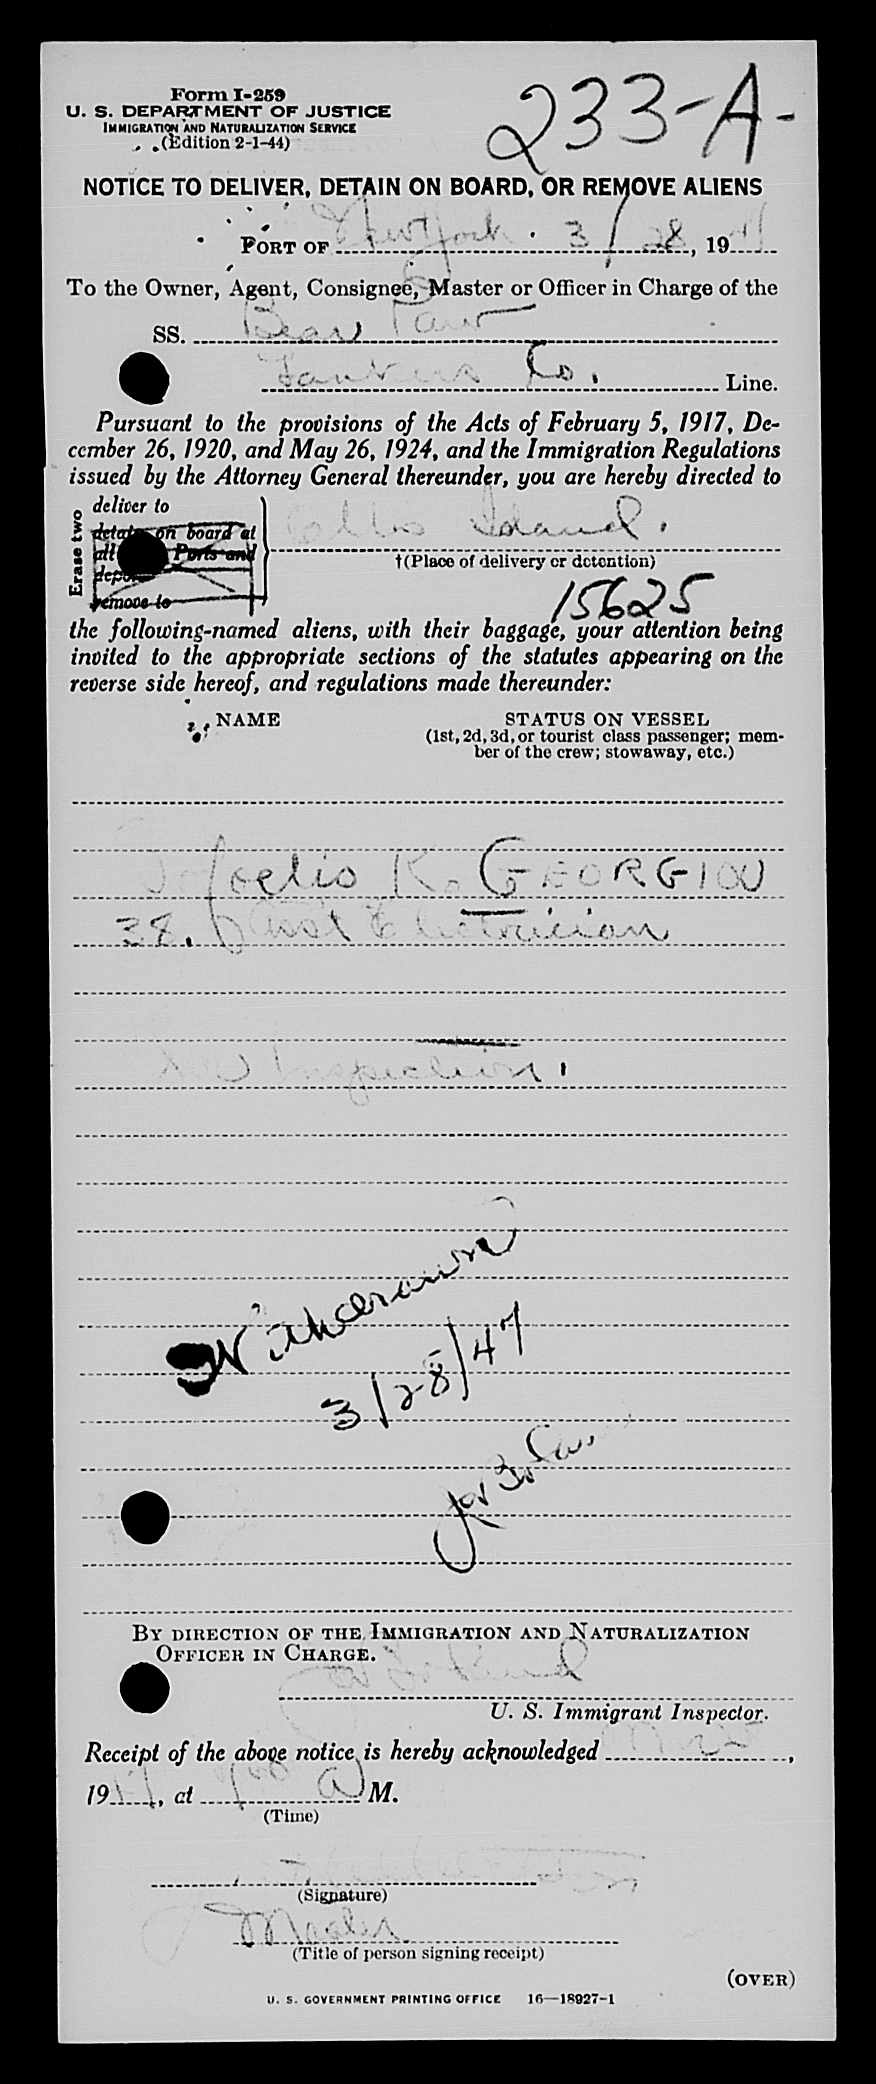 Form I-259
233-A-
U. S. DEPARTMENT OF JUSTICE
IMMIGRATION AND NATURALIZATION SERVICE
(Edition 2-1-44)
NOTICE TO DELIVER, DETAIN ON BOARD, OR REMOVE ALIENS
PORT OF New York 3/28, 1947
To the Owner, Agent, Consignee, Master or Officer in Charge of the
SS. Bear Paw
Tankers Co. Line.
Pursuant to the provisions of the Acts of February 5, 1917, De-
cember 26, 1920, and May 26, 1924, and the Immigration Regulations
issued by the Attorney General thereunder, you are hereby directed to
Erase two
deliver to
detain on board at
all Ports and
remove to
Ellis Island.
†(Place of delivery or detention)
15625
the following-named aliens, with their baggage, your attention being
invited to the appropriate sections of the statutes appearing on the
reverse side hereof, and regulations made thereunder:
NAME STATUS ON VESSEL
(1st, 2d, 3d, or tourist class passenger; mem-
ber of the crew; stowaway, etc.)
K. GEORGIOU
38. Electrician
Inspection.
Withdrawn
3/28/47
BY DIRECTION OF THE IMMIGRATION AND NATURALIZATION
OFFICER IN CHARGE.
U. S. Immigrant Inspector.
Receipt of the above notice is hereby acknowledged
1947, at A M.
(Time)
(Signature)
Master
(Title of person signing receipt)
(OVER)
U. S. GOVERNMENT PRINTING OFFICE 16—18927-1